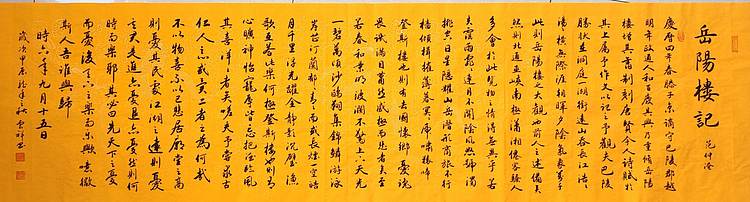 岳陽樓記
范仲淹
慶曆四年春滕子京謫守巴陵郡越
明年政通人和百廢具興乃重修岳陽
樓增其舊制刻唐賢今人詩賦於
其上屬予作文以記之予觀夫巴陵
勝狀在洞庭一湖銜遠山吞長江浩浩
湯湯橫無際涯朝暉夕陰氣象萬千
此則岳陽樓之大觀也前人之述備矣
然則北通巫峽南極瀟湘遷客騷人
多會於此覽物之情得無異乎若
夫霪雨霏霏連月不開陰風怒號濁浪
排空日星隱耀山岳潛形商旅不行
檣傾楫摧薄暮冥冥虎嘯猿啼
登斯樓也則有去國懷鄉憂讒
畏譏滿目蕭然感極而悲者矣至
若春和景明波瀾不驚上下天光
一碧萬頃沙鷗翔集錦鱗游泳
岸芷汀蘭郁郁青青而或長煙一空皓
月千里浮光耀金靜影沉璧漁
歌互答此樂何極登斯樓也則有
心曠神怡寵辱皆忘把酒臨風
其喜洋洋者矣嗟夫予嘗求古
仁人之心或異二者之為何哉
不以物喜不以己悲居廟堂之高
則憂其民處江湖之遠則憂
其君是進亦憂退亦憂然則何
時而樂耶其必曰先天下之憂
而憂後天下之樂而樂歟噫微
斯人吾誰與歸
時六年九月十五日
歲次甲辰